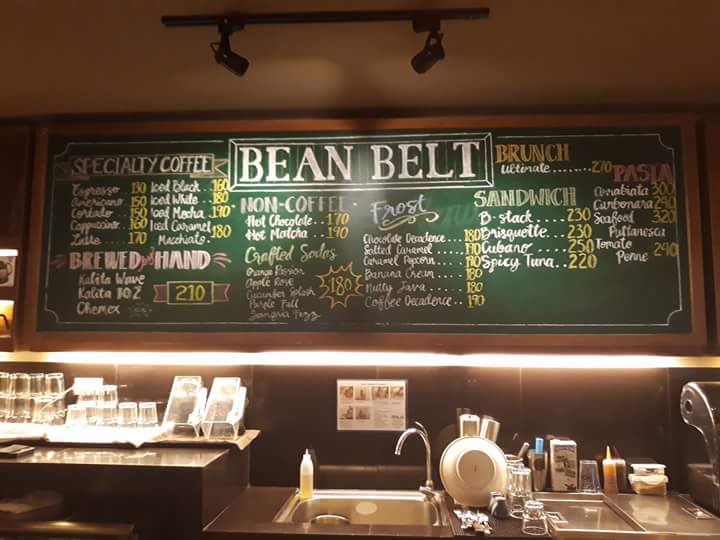 BEAN BELT
SPECIALTY COFFEE
Espresso 130
Americano 150
Cortado 150
Cappuccino 160
Latte 170
Iced Black 160
Iced White 180
Iced Mocha 190
Iced Caramel
Macchiato 180
BREWED BY HAND
Kalita Wave
Kalita 102
Chemex
210
NON-COFFEE
Hot Chocolate 170
Hot Matcha 190
Crafted Sodas
Orange Passion
Apple Rose
Cucumber Splash
Purple Fall
Sangria Fizz
180
Frost
Chocolate Decadence 180
Salted Caramel 190
Caramel Popcorn 190
Banana Cream 180
Nutty Java 180
Coffee Decadence 190
BRUNCH
Ultimate 270
SANDWICH
B-stack 230
Brisquette 230
Cubano 250
Spicy Tuna 220
PASTA
Arrabiata 300
Carbonara 290
Seafood 320
Puttanesca
Tomato 240
Penne